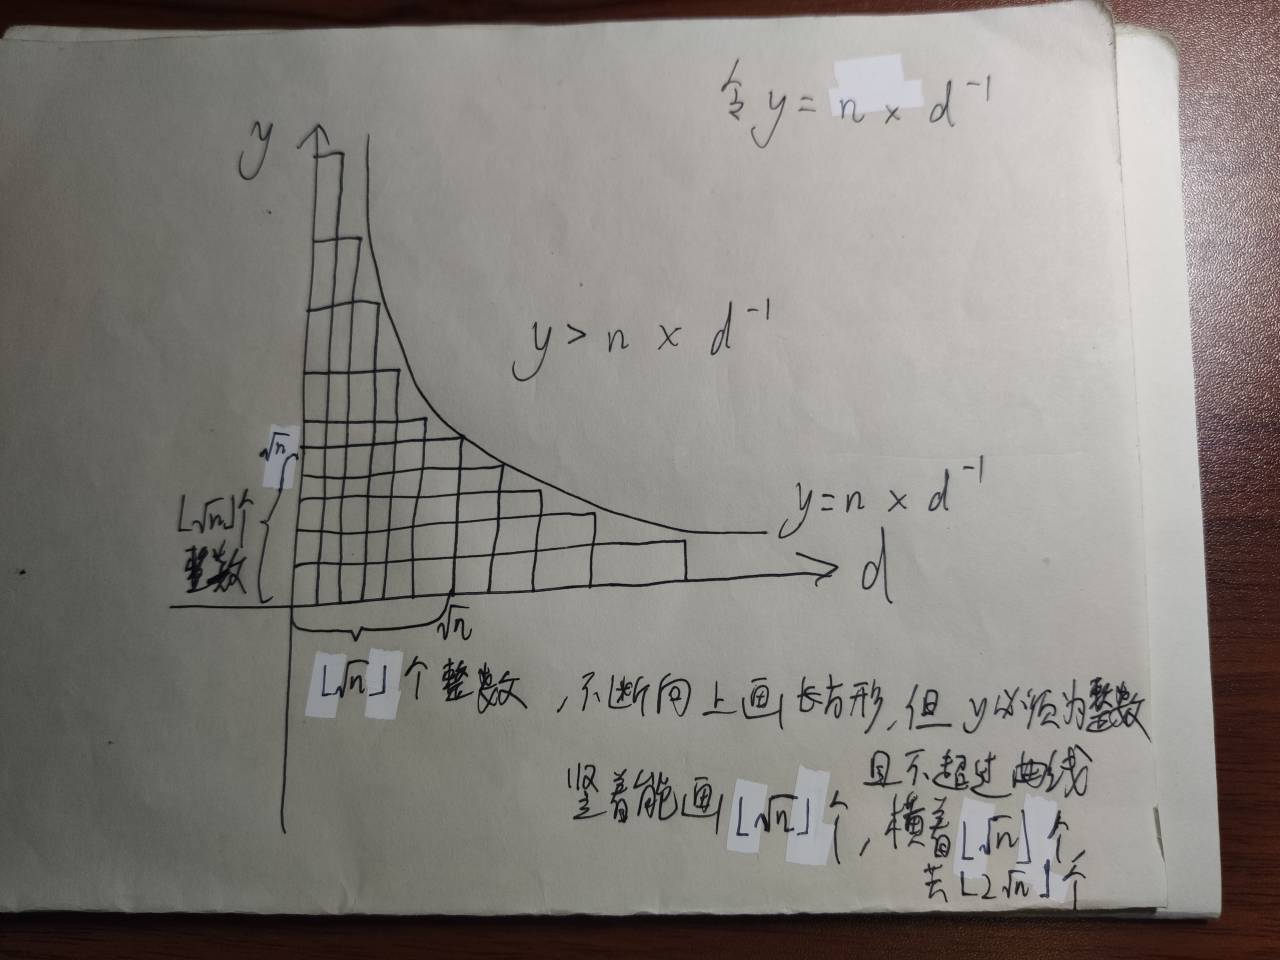 令 y = n × d⁻¹
y
y > n × d⁻¹
√n
⌊√n⌋个
整数
y = n × d⁻¹
d
√n
⌊√n⌋ 个整数，不断向上画长方形，但 y 必须为整数
且不超过曲线
竖着能画⌊√n⌋个，横着⌊√n⌋个，
共⌊2√n⌋个